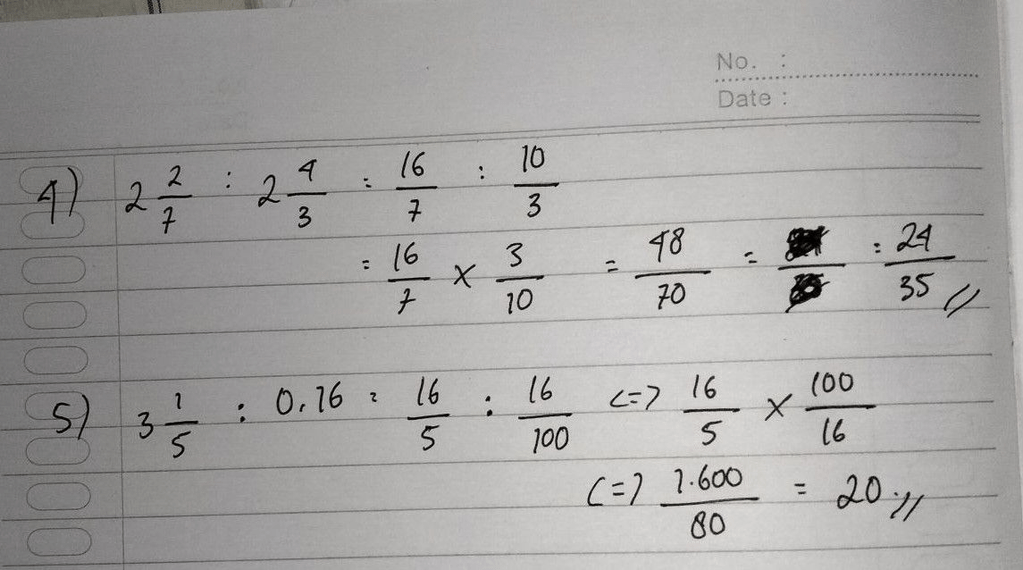 No. :
Date :
4) 2 2/7 : 2 4/3 = 16/7 : 10/3
= 16/7 × 3/10 = 48/70 = = 24/35 //
5) 3 1/5 : 0,16 = 16/5 : 16/100 <=> 16/5 × 100/16
<=> 1.600/80 = 20 //